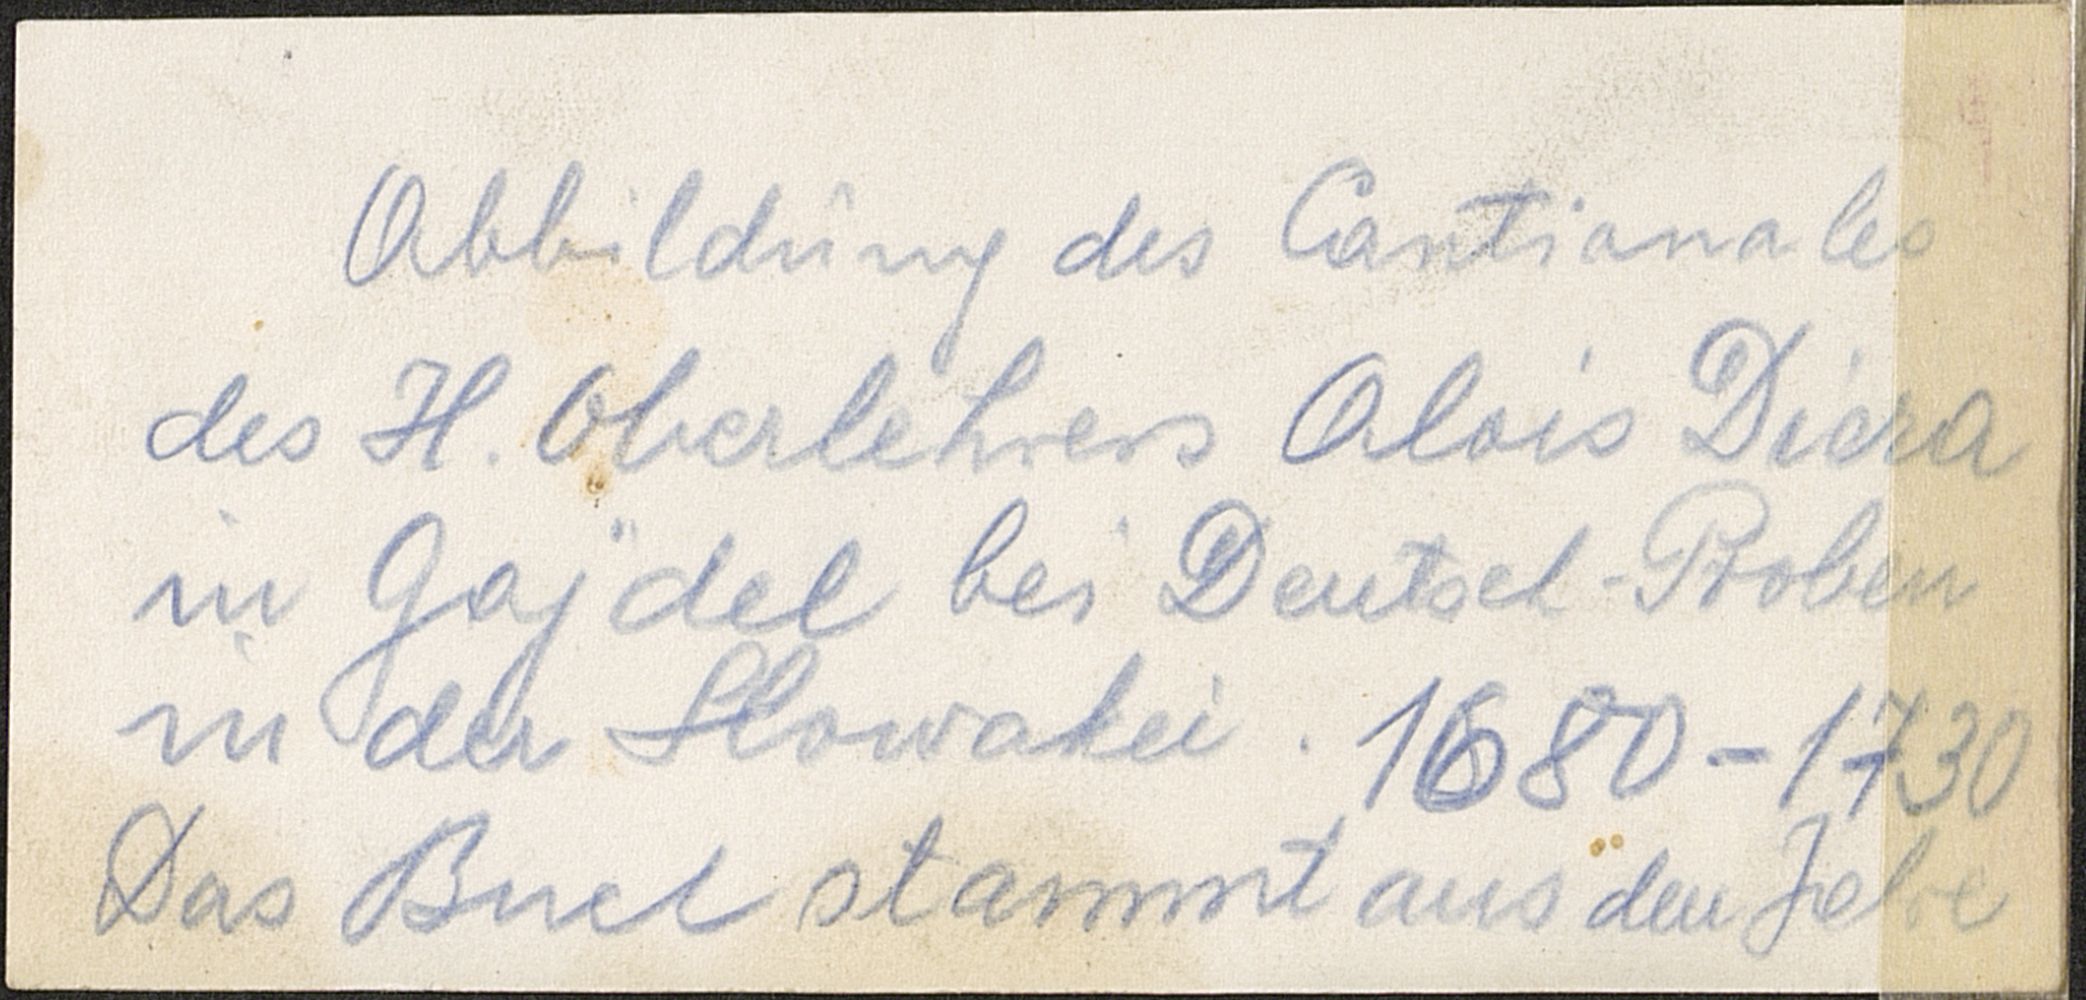 Abbildung des Cantionales
des H. Oberlehrers Alois Diera
in Gajdel bei Deutsch-Proben
in der Slowakei. 1680-1730
Das Buch stammt aus dem Jahre